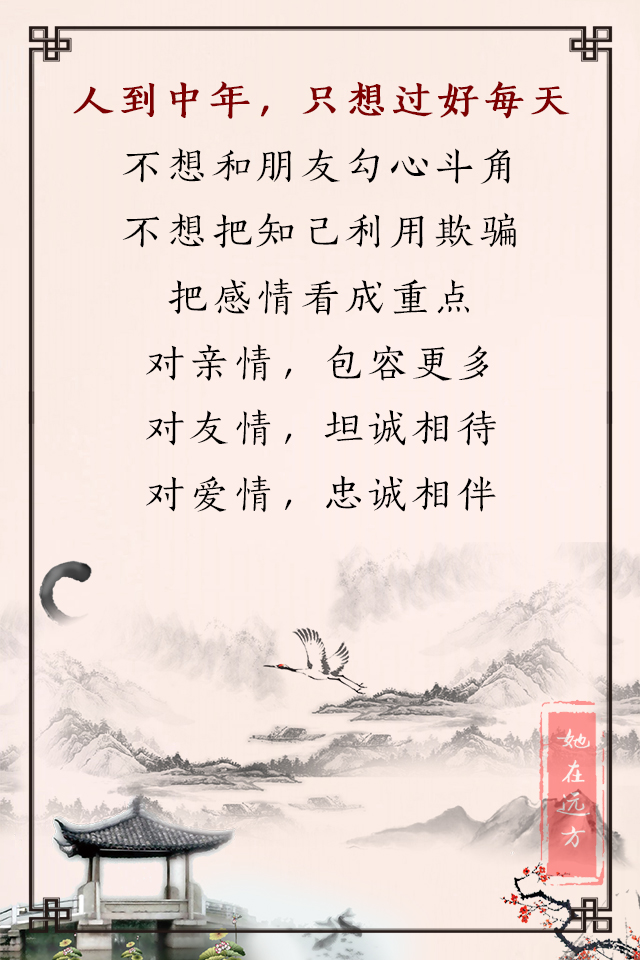 人到中年，只想过好每天
不想和朋友勾心斗角
不想把知己利用欺骗
把感情看成重点
对亲情，包容更多
对友情，坦诚相待
对爱情，忠诚相伴
她在远方